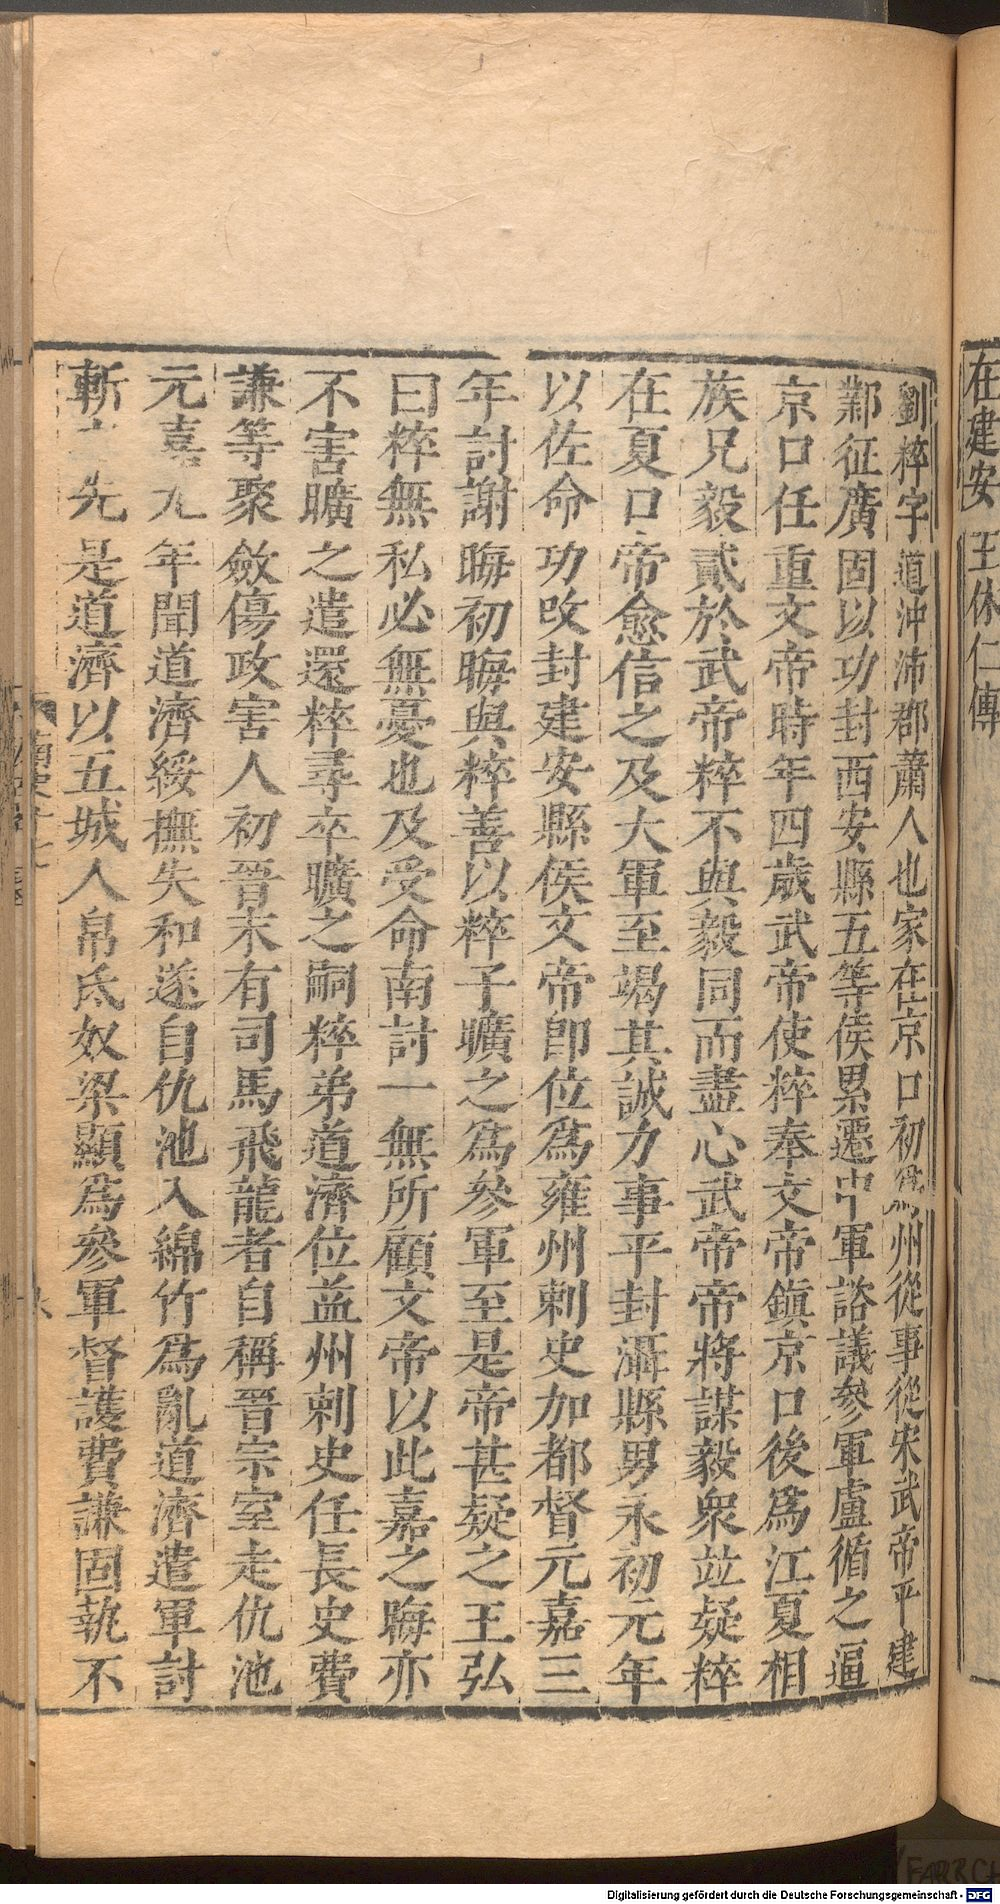 在建安王休仁傳
劉粹字道沖沛郡蕭人也家在京口初爲州從事從宋武帝平建
鄴征廣固以功封西安縣五等侯累遷中軍諮議參軍盧循之逼
京口任重文帝時年四歲武帝使粹奉文帝鎮京口後爲江夏相
族兄毅貳於武帝粹不與毅同而盡心武帝帝將謀毅衆竝疑粹
在夏口帝愈信之及大軍至竭其誠力事平封灄縣男永初元年
以佐命功改封建安縣侯文帝即位爲雍州剌史加都督元嘉三
年討謝晦初晦與粹善以粹子曠之爲參軍至是帝甚疑之王弘
曰粹無私必無憂也及受命南討一無所顧文帝以此嘉之晦亦
不害曠之遣還粹尋卒曠之嗣粹弟道濟位益州剌史任長史費
謙等聚斂傷政害人初晉末有司馬飛龍者自稱晉宗室走仇池
元嘉九年聞道濟綏撫失和遂自仇池入綿竹爲亂道濟遣軍討
斬先是道濟以五城人帛氐奴梁顯爲參軍督護費謙固執不
Digitalisierung gefördert durch die Deutsche Forschungsgemeinschaft - DFG